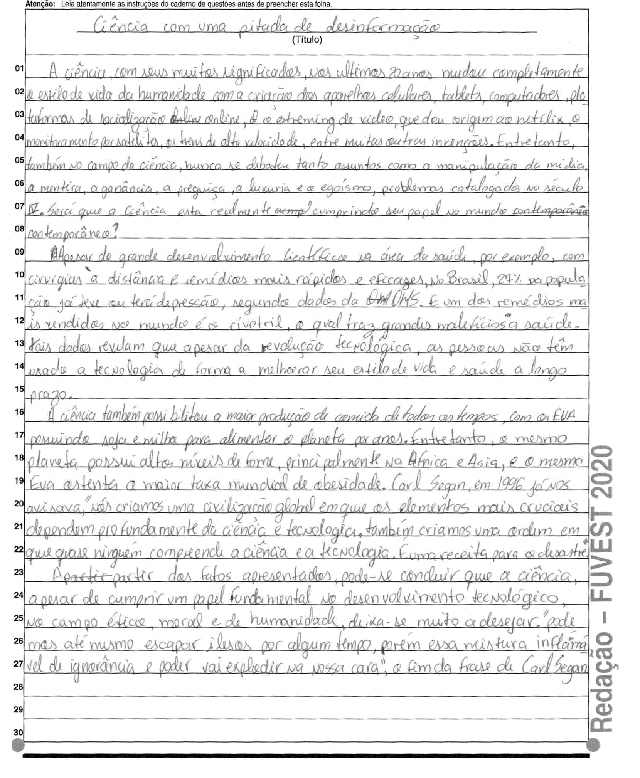 Atenção: Leia atentamente as instruções do caderno de questões antes de preencher esta folha.
Ciência com uma pitada de desinformação
(Título)
01 A ciência, com seus muitos significados, nos ultimos 20 anos mudou completamente
02 o estilo de vida da humanidade com a criação dos aparelhos celulares, tablets, computadores, pla
03 taformas de socialização online, é o estreming de video, que deu origem ao netflix, o
04 monitoramento por satélites, os trens de alta velocidade, entre muitas outras invenções. Entretanto,
05 também no campo da ciência, nunca se debateu tanto assuntos como a manipulação da mídia,
06 a mentira, a ganância, a preguiça, a luxuria e o egoísmo, problemas catalogados no século
07 V. Será que a Ciência esta realmente cumprindo seu papel no mundo contemporâneo
08 contemporâneo?
09 Apesar do grande desenvolvimento científico na área da saúde, por exemplo, com
10 cirurgias à distância e remédios mais rápidos e eficazes, No Brasil, 27% da popula
11 ção já teve ou terá depressão, segundo dados da OMS. E um dos remédios ma
12 is vendidos no mundo é o rivotril, o qual traz grandes maleficios a saúde.
13 Tais dados revelam que apesar da revolução tecnológica, as pessoas não têm
14 usado a tecnologia de forma a melhorar seu estilo de vida e saúde a longo
15 prazo.
16 A ciência também possibilitou a maior produção de comida de todos os tempos, com os EUA
17 possuindo soja e milho para alimentar o planeta por anos. Entretanto, o mesmo
18 planeta possui altos níveis de fome, principalmente na Africa e Asia, e o mesmo
19 Eua ostenta a maior taxa mundial de obesidade. Carl Segan, em 1996 já nos
20 avisava, "nós criamos uma civilização global em que os elementos mais cruciais
21 dependem profundamente da ciência e tecnologia. também criamos uma ordem em
22 que quase ninguem compreende a ciência e a tecnologia. É uma receita para o desastre"
23 A parter dos fatos apresentados, pode-se concluir que a ciência,
24 apesar de cumprir um papel fundamental no desenvolvimento tecnológico,
25 no campo ético, moral e de humanidade, deixa-se muito a desejar. "pode
26 mos até mesmo escapar ilesos por algum tempo, porém essa mistura inflamá
27 vel de ignorância e poder vai explodir na nossa cara", o fim da frase de Carl Segan
28
29
30
Redação – FUVEST 2020